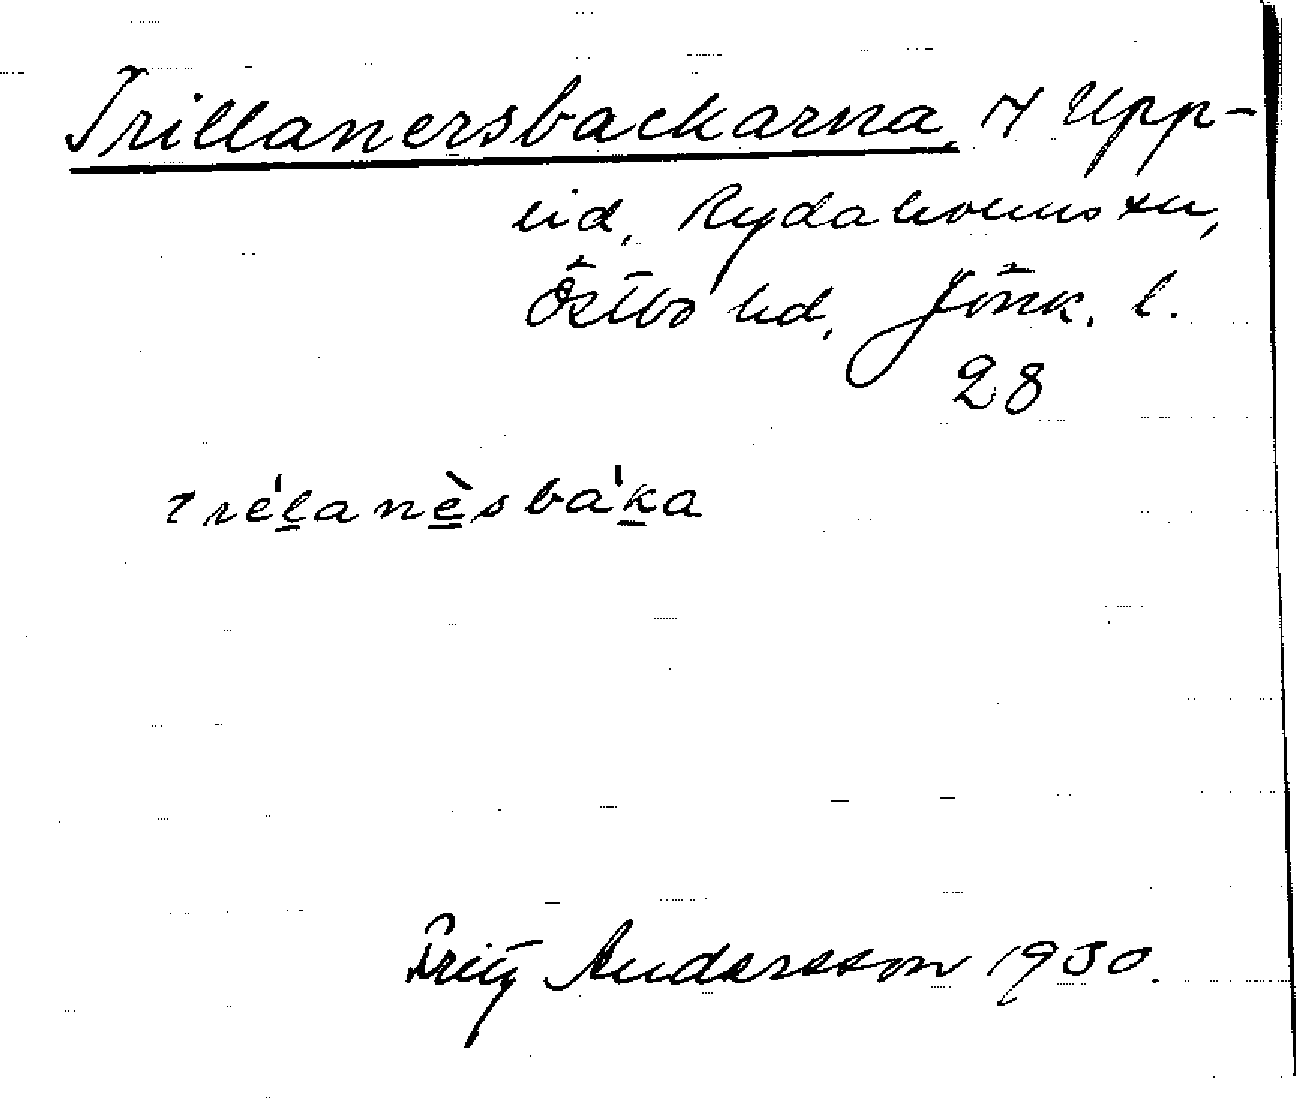 Trillanersbackarna, 7 Upp-
lid, Rydaholms sn,
Östbo hd, Jönk. l.
28
tre'l̲anè̲sba'k̲a
Fritz Andersson 1930.